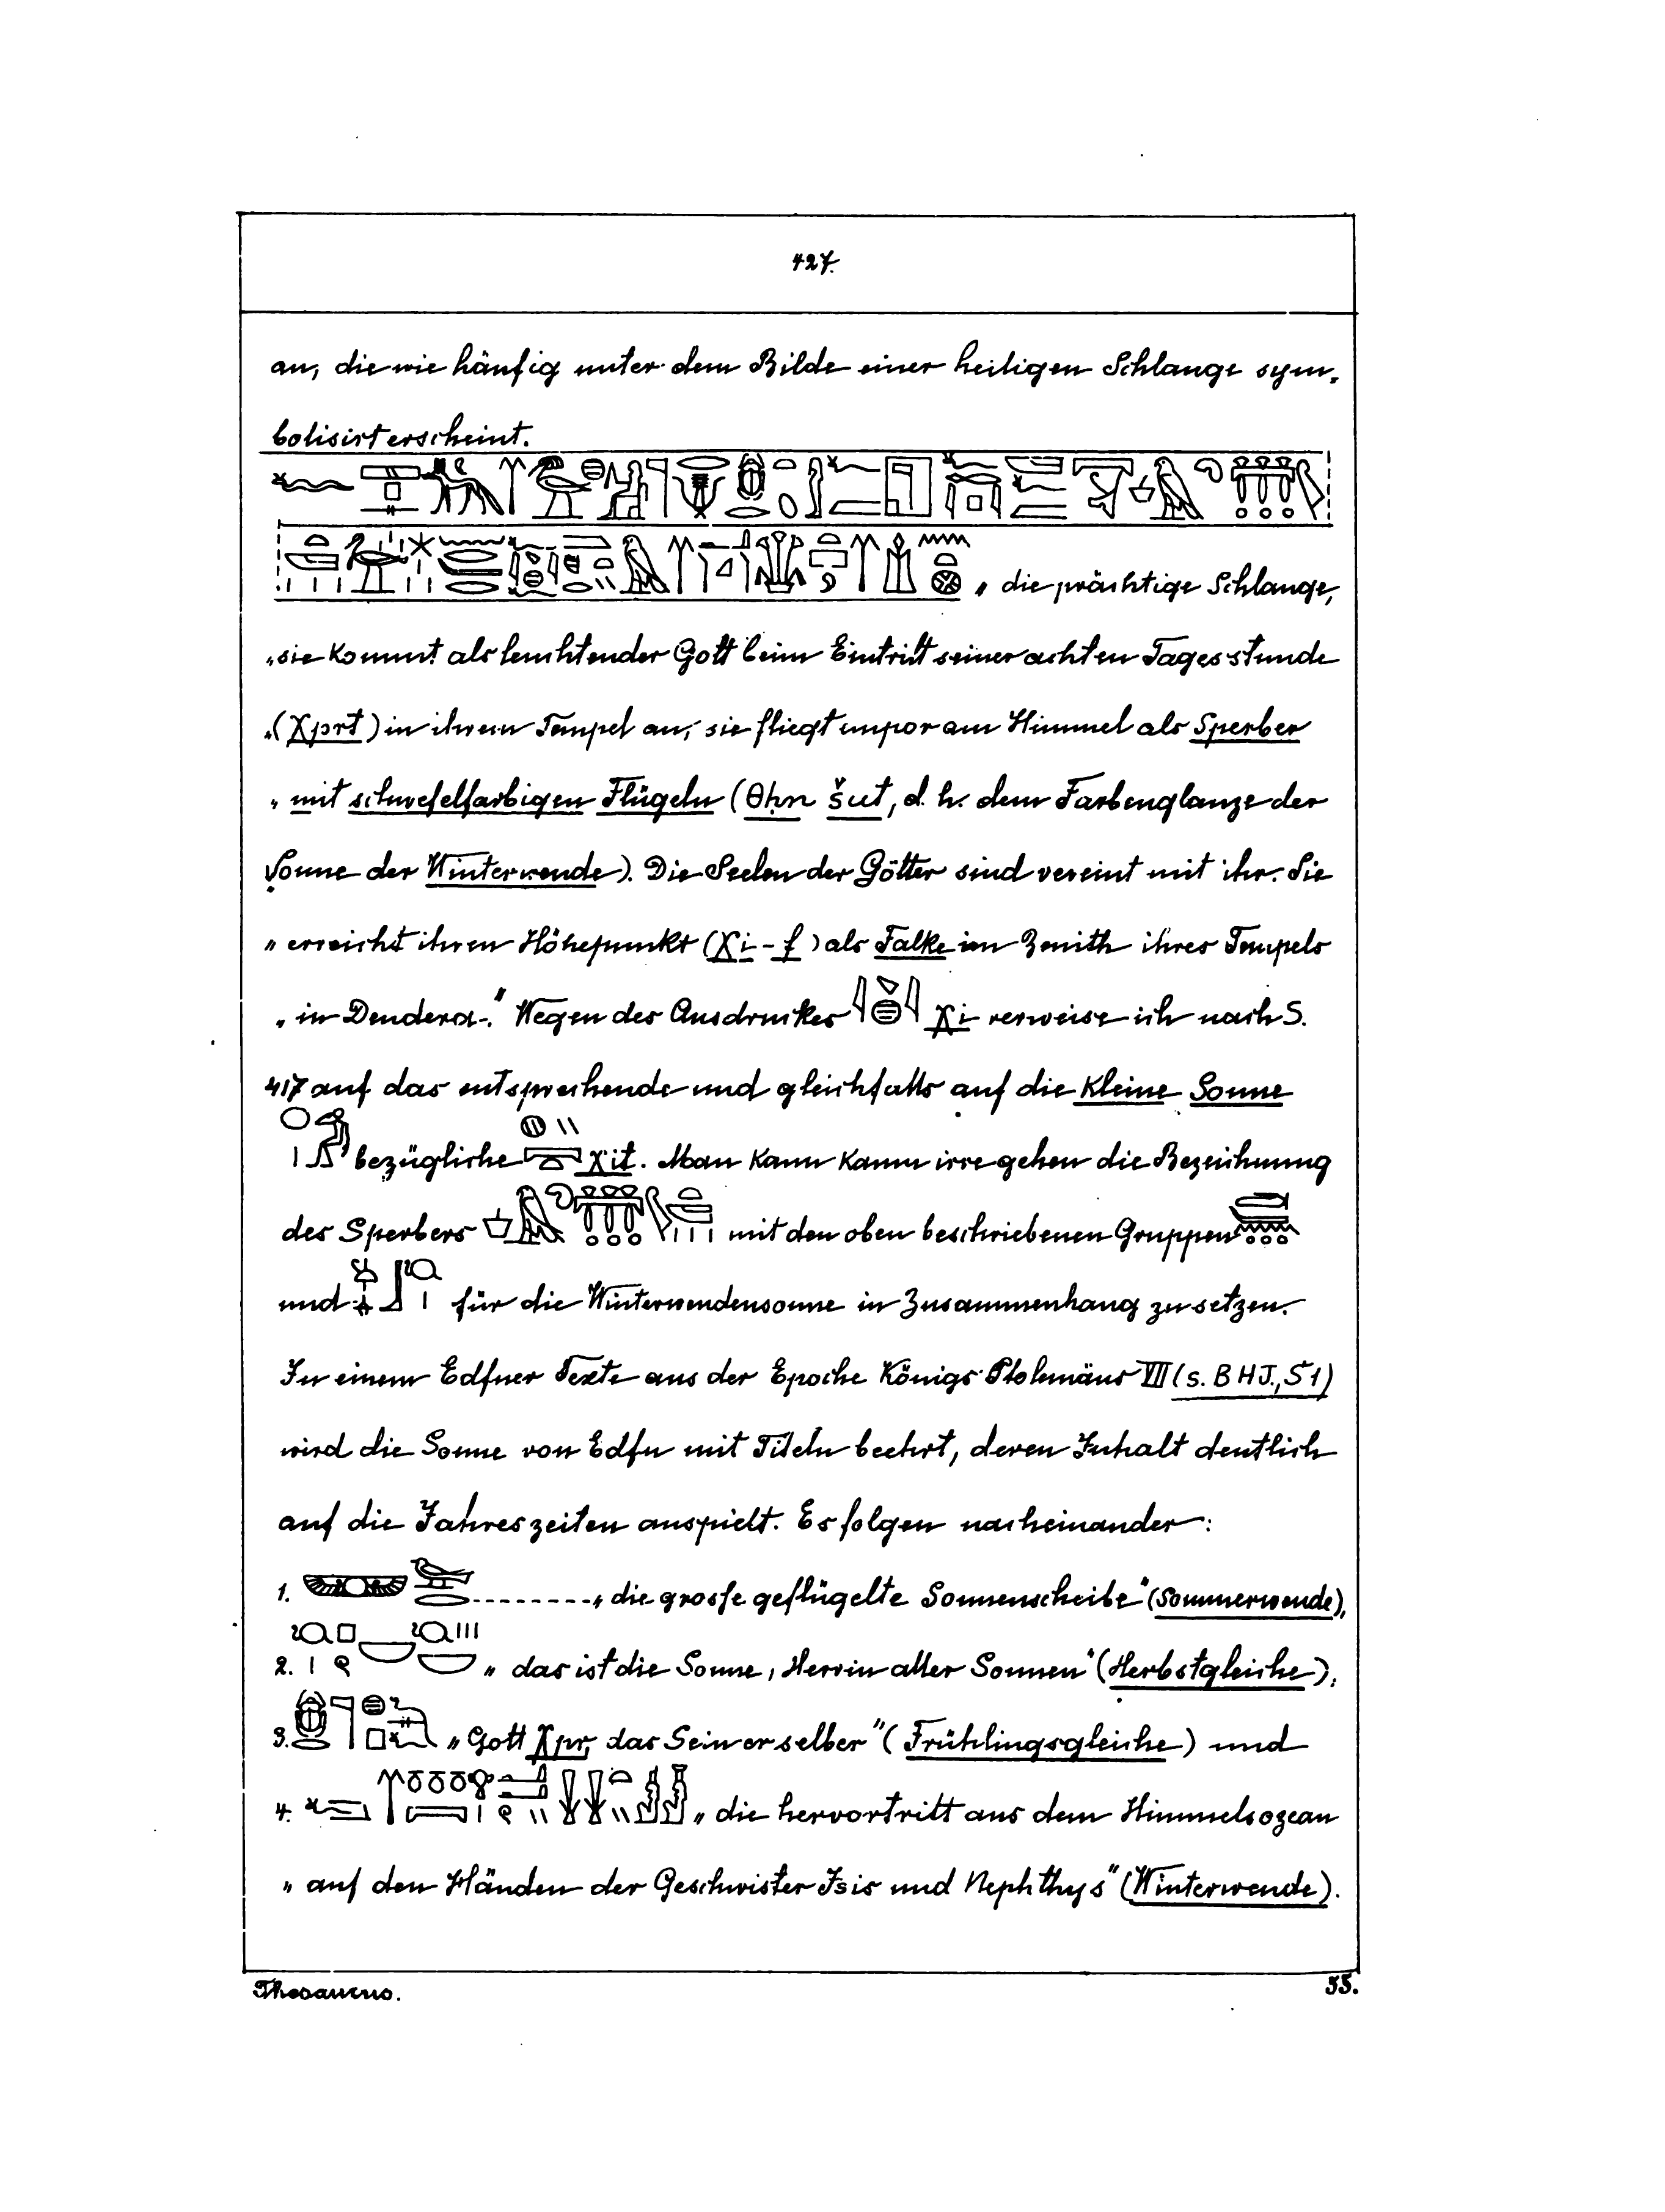 427.
an, die wie häufig unter dem Bilde einer heiligen Schlange sym-
bolisirt erscheint.
„die prächtige Schlange,
„sie kommt als leuchtender Gott beim Eintritt seiner achten Tagesstunde
„(Xprt) in ihrem Tempel an, sie fliegt empor am Himmel als Sperber
„mit schwefelfarbigen Flügeln (Θḥn šut, d. h. dem Farbenglanze der
Sonne der Winterwende). Die Seelen der Götter sind vereint mit ihr. Sie
„erreicht ihren Höhepunkt (Xi-f) als Falke im Zenith ihres Tempels
„in Dendera." Wegen des Ausdruckes Xi verweise ich nach S.
417 auf das entsprechende und gleichfalls auf die kleine Sonne
bezügliche Xit. Man kann kaum irre gehen die Bezeichnung
des Sperbers mit den oben beschriebenen Gruppen
und für die Winterwendensonne in Zusammenhang zu setzen.
In einem Edfuer Texte aus der Epoche Königs Ptolemäus VII (s. B H J., 51)
wird die Sonne von Edfu mit Titeln beehrt, deren Inhalt deutlich
auf die Jahreszeiten anspielt. Es folgen nacheinander:
1. „die grosse geflügelte Sonnenscheibe" (Sommerwende),
2. „das ist die Sonne, Herrin aller Sonnen" (Herbstgleiche),
3. „Gott Xpr, das Sein er selber" (Frühlingsgleiche) und
4. „die hervortritt aus dem Himmelsozean
„auf den Händen der Geschwister Isis und Nephthys" (Winterwende).
Thesaurus. 55.